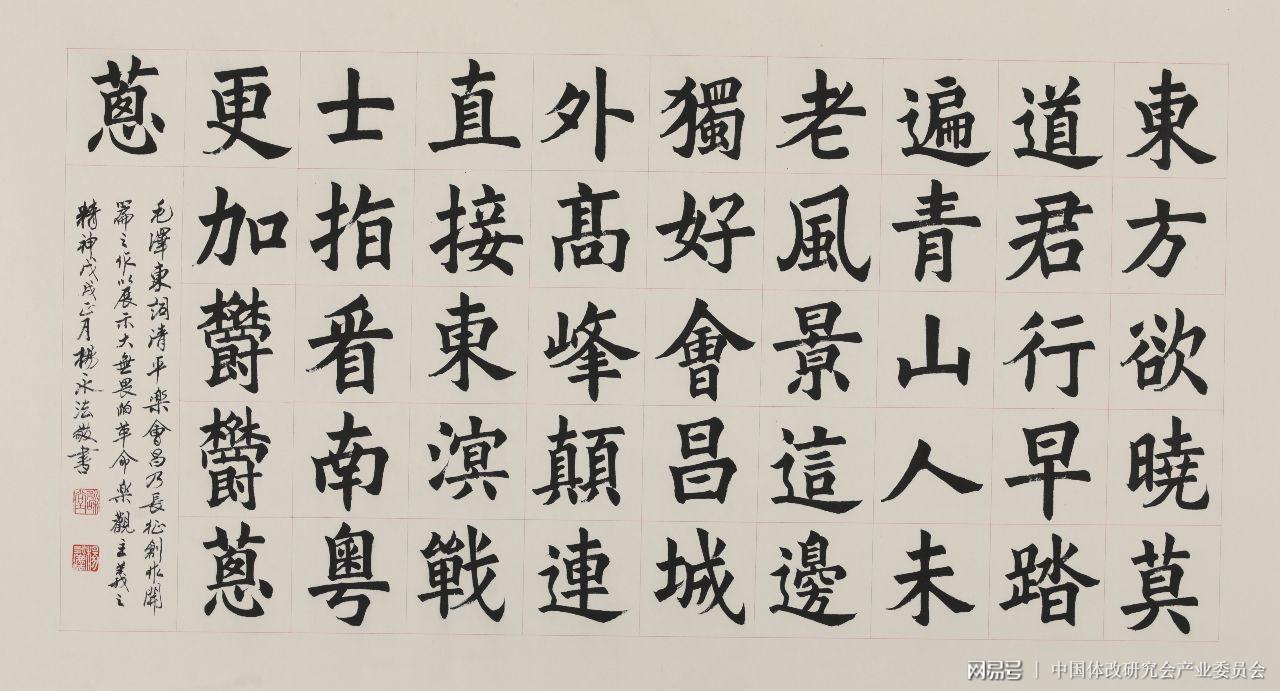 東方欲曉莫
道君行早踏
遍青山人未
老風景這邊
獨好會昌城
外髙峰顛連
直接東溟戰
士指看南粵
更加欝欝蔥
蔥
毛澤東詞清平楽會昌乃長征創作開
篇之作以展示大無畏的革命楽觀主義之
精神戊戌正月楊永法敬書
网易号 | 中国体改研究会产业委员会